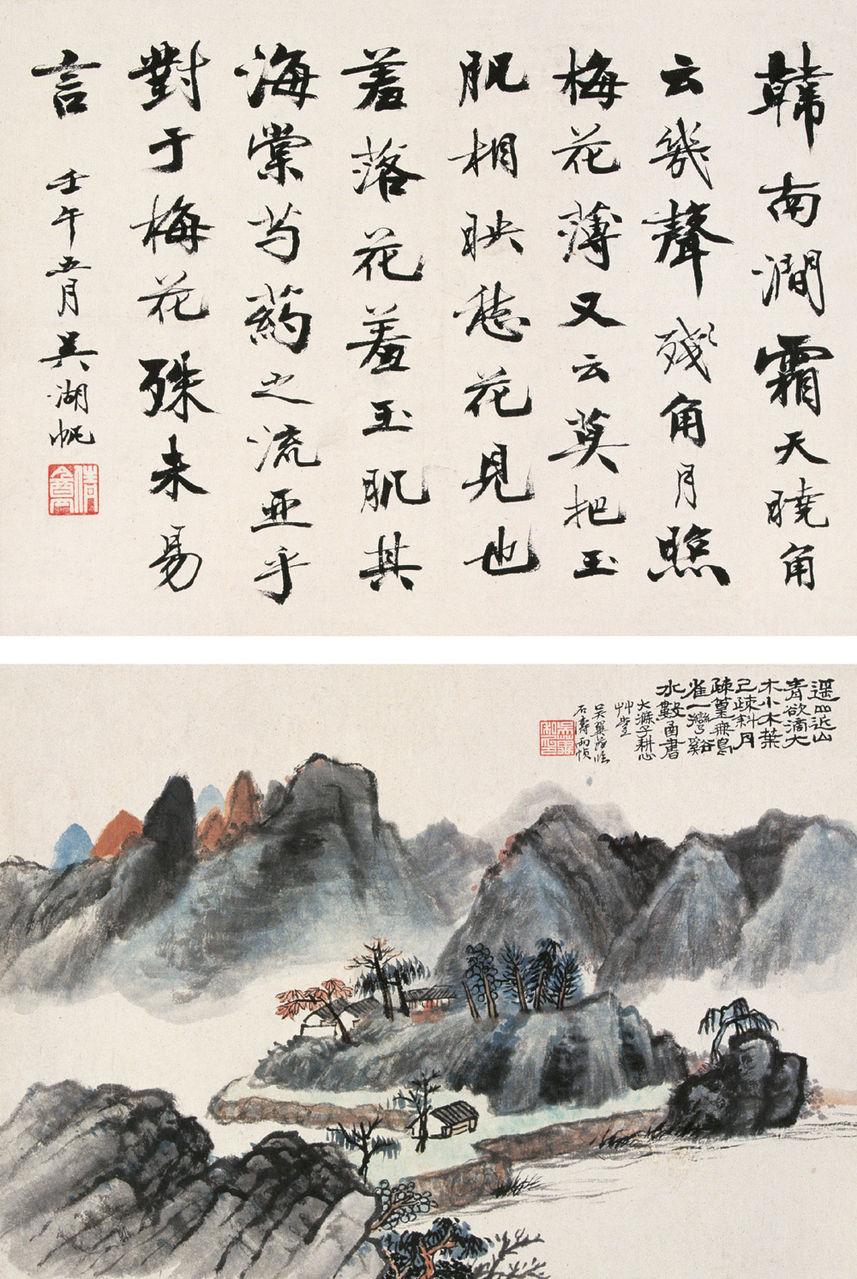 韓南澗霜天曉角
云幾聲殘角月照
梅花薄又云莫把玉
肌相映愁花見也
羞落花羞玉肌其
海棠芍藥之流亞乎
對于梅花殊未易
言 壬午五月吴湖帆
遥山近山
青欲滴大
木小木葉
已疎斜月
疎篁無鳥
雀一灣谿
水數函書
大滌子耕心
艸堂